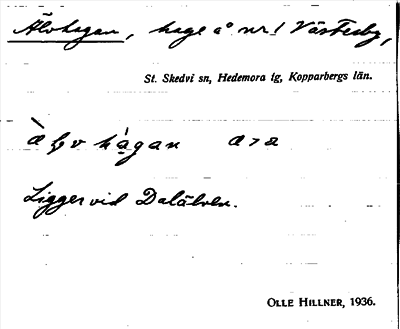 Älvhagan, hage å nr 1 Västerby,
St. Skedvi sn, Hedemora tg, Kopparbergs län.
hágan a > a
Ligger vid Dalälven.
OLLE HILLNER, 1936.